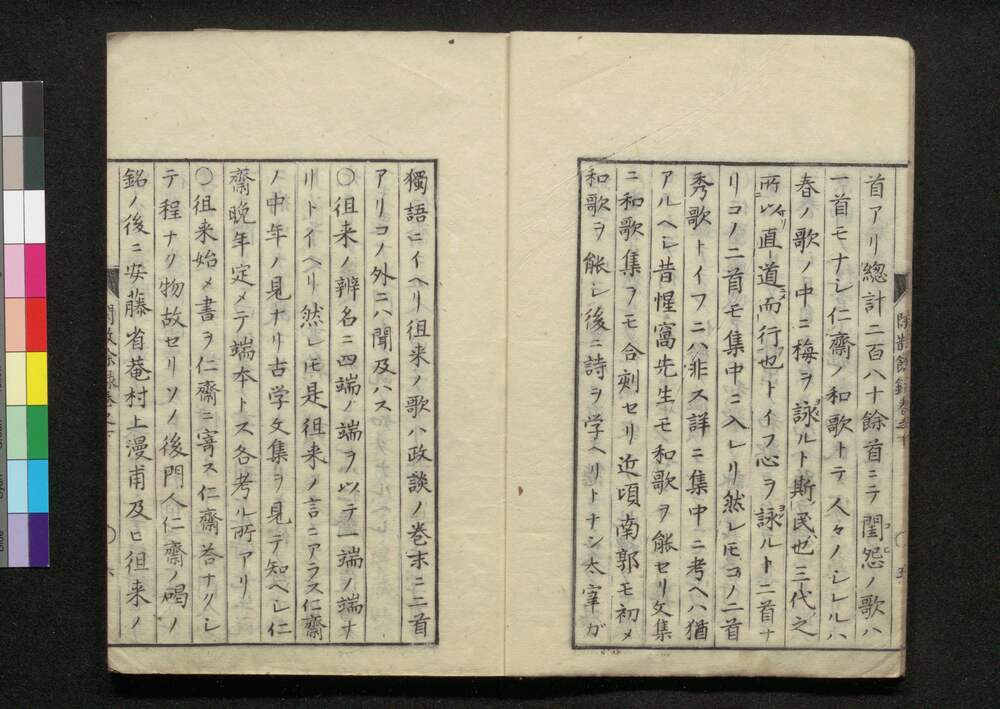 首アリ總計二百八十餘首ニテ閨怨ノ歌ハ
一首モナシ仁齋ノ和歌トテ人々ノシレルハ
春ノ歌ノ中ニ梅ヲ詠ルト斯民也三代之
所以直道而行也トイフ心ヲ詠ルト二首ナ
リコノ二首モ集中ニ入レリ然レ𪜈コノ二首
秀歌トイフニハ非ス詳ニ集中ニ考ヘハ猶
アルヘシ昔惺窩先生モ和歌ヲ能セリ文集
ニ和歌集ヲモ合刻セリ近頃南郭モ初メ
和歌ヲ能シ後ニ詩ヲ学ヘリトナン太宰ガ
獨語ニイヘリ徂来ノ歌ハ政談ノ巻末ニ二首
アリコノ外ニハ聞及ハス
○徂来ノ辨名ニ四端ノ端ヲ以テ一端ノ端ナ
リトイヘリ然レ𪜈是徂来ノ言ニアラス仁齋
ノ中年ノ見ナリ古学文集ヲ見テ知ヘシ仁
齋晩年定メテ端本トス各考ル所アリ
○徂来始メ書ヲ仁齋ニ寄ス仁齋荅ナクシ
テ程ナク物故セリソノ後門人仁齋ノ碣ノ
銘ノ後ニ安藤省菴村上漫甫及ヒ徂来ノ